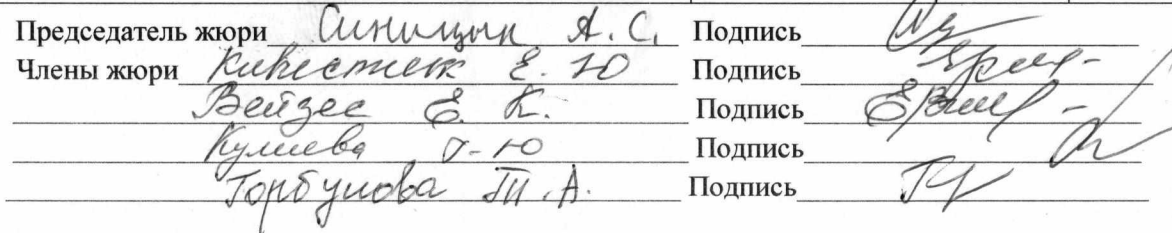 Председатель жюри Синицын А. С. Подпись
Члены жюри Е. Ю Подпись
Вейзес Е. К. Подпись
Кулиева Подпись
Горбунова Т. А. Подпись